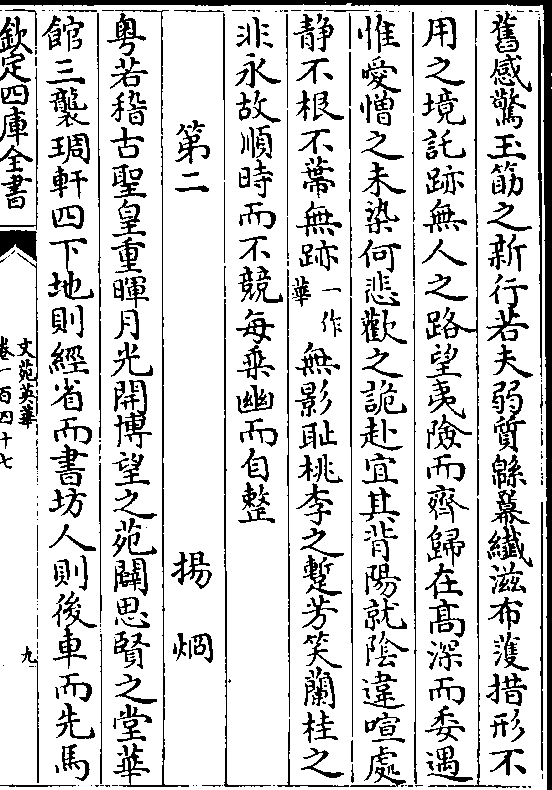 舊感驚玉筯之新行若夫弱質緜羃纖滋布濩措形不
用之境託跡無人之路望夷險而齊歸在髙深而委遇
惟愛憎之未染何悲歡之詭赴宜其背陽就陰違喧處
静不根不蔕無跡一作華無影耻桃李之蹔芳笑蘭桂之
非永故順時而不競每乘幽而自整
第二 揚烱
粤若稽古聖皇重暉月光開博望之苑闢思賢之堂華
館三襲琱軒四下地則經省而書坊人則後車而先馬
欽定四庫全書
文苑英華
卷一百四十七
九